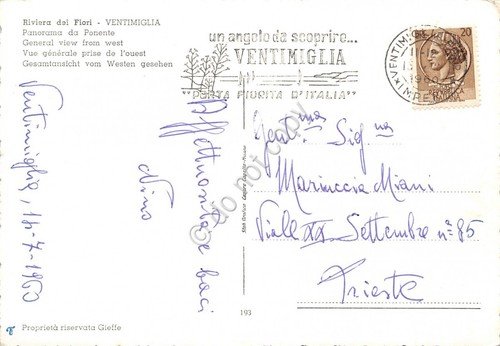 Riviera dei Fiori - VENTIMIGLIA
Panorama da Ponente
General view from west
Vue générale prise de l'ouest
Gesamtansicht vom Westen gesehen
un angelo da scoprire...
VENTIMIGLIA
"PORTA FIORITA D'ITALIA"
VENTIMIGLIA
IMPERIA
20
Ventimiglia, 14-7-1960
Affettuosità e baci
Nino
Gent.ma Sig.na
Mariuccia Miani
Viale XX Settembre n° 85
Trieste
do not copy
193
Proprietà riservata Gieffe